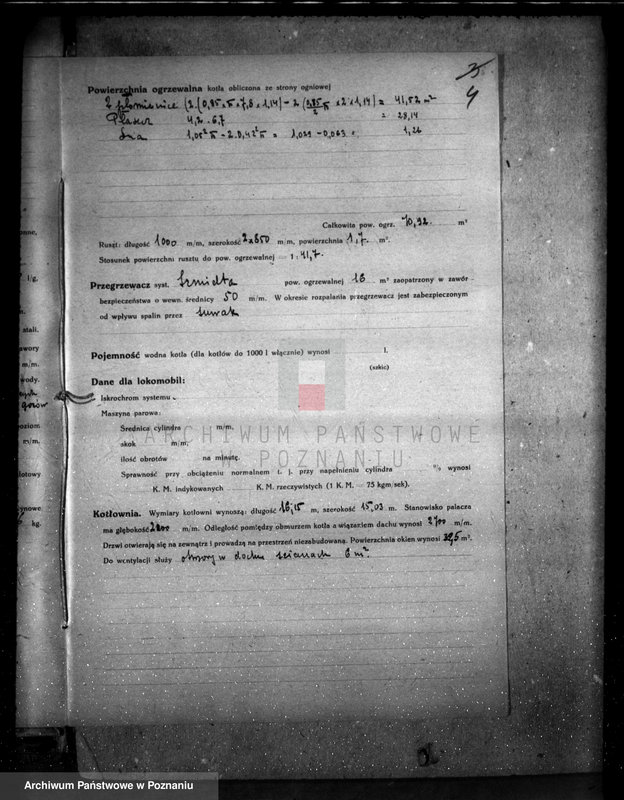 Powierzchnia ogrzewalna kotła obliczona ze strony ogniowej
4
2 płomienice (2(0,85 x π x 7,8 x 1,14) - 2 (0,85/2 π x 2 x 1,14) = 41,52 m²
Płaszcz 4,2 · 6,7 = 28,14
Dna 1,05² π - 2·0,42² π = 1,029 - 0,063 = 1,26
Całkowita pow. ogrz. 70,92 m²
Ruszt: długość 1000 m/m, szerokość 2x850 m/m, powierzchnia 1,7 m².
Stosunek powierzchni rusztu do pow. ogrzewalnej = 1 : 41,7.
Przegrzewacz syst. Szmidta pow. ogrzewalnej 18 m² zaopatrzony w zawór
bezpieczeństwa o wewn. średnicy 50 m/m. W okresie rozpalania przegrzewacz jest zabezpieczonym
od wpływu spalin przez suwak
Pojemność wodna kotła (dla kotłów do 1000 l włącznie) wynosi l.
(szkic)
Dane dla lokomobil:
Iskrochrom systemu
Maszyna parowa:
Średnica cylindra m/m.
skok m/m.
ilość obrotów na minutę.
Sprawność przy obciążeniu normalnem t. j. przy napełnieniu cylindra % wynosi
K. M. indykowanych K. M. rzeczywistych (1 K. M. = 75 kgm/sek).
Kotłownia. Wymiary kotłowni wynoszą: długość 16,15 m, szerokość 15,03 m. Stanowisko palacza
ma głębokość 2200 m/m. Odległość pomiędzy obmurzem kotła a wiązaniem dachu wynosi 2700 m/m.
Drzwi otwierają się na zewnątrz i prowadzą na przestrzeń niezabudowaną. Powierzchnia okien wynosi 39,5 m².
Do wentylacji służy otwory w dachu ścianach 6 m².
ARCHIWUM PAŃSTWOWE
W POZNANIU
Archiwum Państwowe w Poznaniu